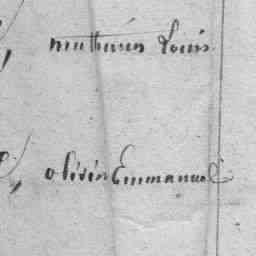 mathurin Louis
olivier Emmanuel